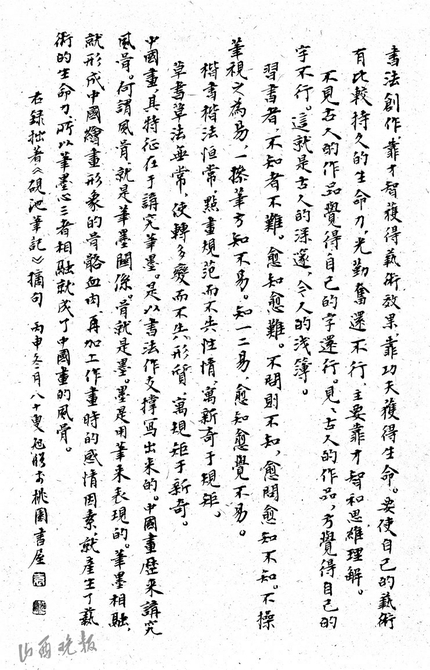 書法創作靠才智獲得藝術效果，靠功夫獲得生命。要使自己的藝術
有比較持久的生命力，光勤奮還不行，主要靠才智和思維理解。
不見古人的作品，覺得自己的字還行。見古人的作品，方覺得自己的
字不行。這就是古人的深邃，令人的浅簿。
習書者，不知者不難。愈知愈難。不閱則不知，愈閱愈知不知。不操
筆視之為易，一操筆方知不易。知一二易，愈知愈覺不易。
楷書楷法恒常，點畫規范而不失性情，寓新奇于規矩。
草書草法無常，使轉多變而不失形質，寓規矩于新奇。
中國畫，其特征在于講究筆墨。是以書法作支撐寫出來的。中國畫歷來講究
風骨。何謂風骨，就是筆墨關係。骨就是墨。墨是用筆來表現的。筆墨相融，
就形成中國繪畫形象的骨骼血肉，再加上作畫時的感情因素，就產生了藝
術的生命力。所以筆墨心三者相融就成了中國畫的風骨。
右錄拙著《硯池筆記》摘句 丙申冬月八十叟 于桃園書屋
山西晚报